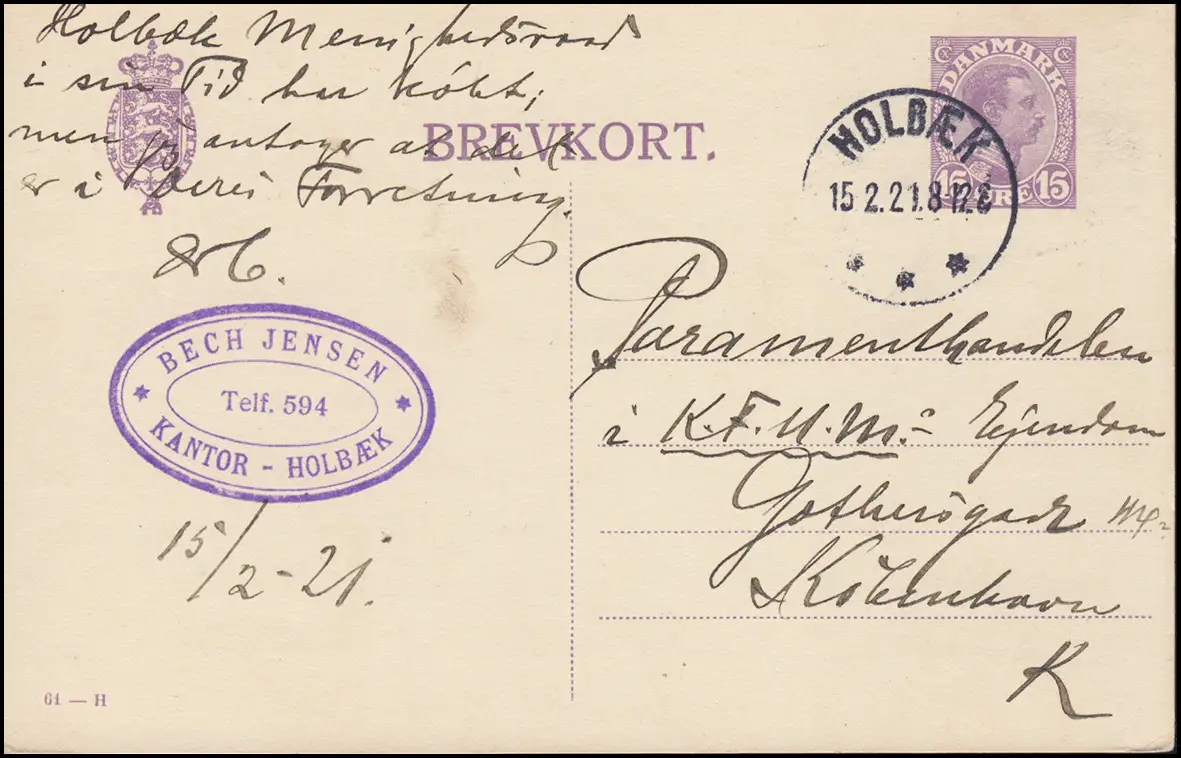 Holbæk Menighedsraad
i sin Tid har købt;
men jeg antager at det
er i Deres Forretning.
BREVKORT.
DANMARK
15 ØRE 15
HOLBÆK
15.2.21.8-12.E
Ærb.
BECH JENSEN
Telf. 594
KANTOR - HOLBÆK
15/2-21.
Paramenthandelen
i K.F.U.M.s Ejendom
Gothersgade
København
K
61 — H